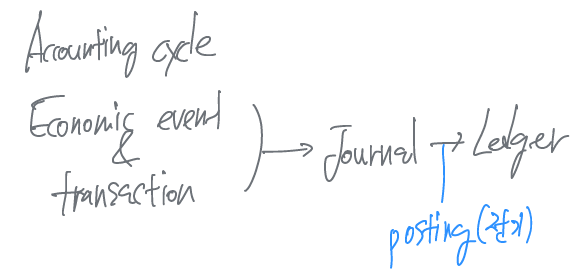 Accounting cycle
Economic event
&
transaction
→ Journal → Ledger
posting(전기)